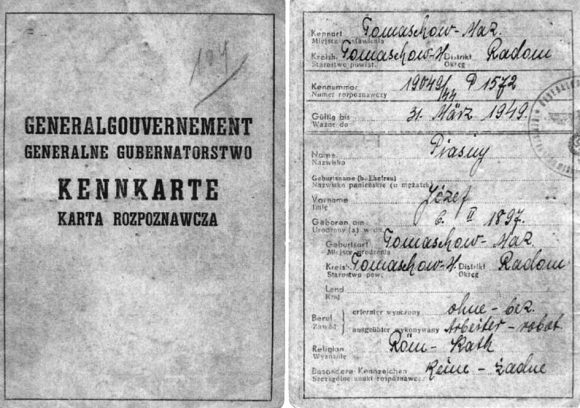 104
GENERALGOUVERNEMENT
GENERALNE GUBERNATORSTWO
KENNKARTE
KARTA ROZPOZNAWCZA
Kennort Tomaschow-Maz.
Miejsce wystawienia
Kreish. Tomaschow-M Distrikt Radom
Starostwo powiat. Okręg
Kennummer 19049/44 P 1572
Numer rozpoznawczy
Gültig bis 31. März 1949.
Ważne do
Name Piasny
Nazwisko
Geburtsname (b. Ehefrau)
Nazwisko panieńskie (u mężatki)
Vorname Józef
Imię
Geboren am 6. II 1897.
Urodzony (a) w dn.
Geburtsort Tomaschow-Maz.
Miejsce urodzenia
Kreish. Tomaschow-M Distrikt Radom
Starostwo pow. Okręg
Land
Kraj
Beruf erlernter wyuczony ohne-bez.
Zawód ausgeübter wykonywany Arbeiter-robot.
Religion Röm-Kath
Wyznanie
Besondere Kennzeichen Keine-żadne
Szczególne znaki rozpoznawc.